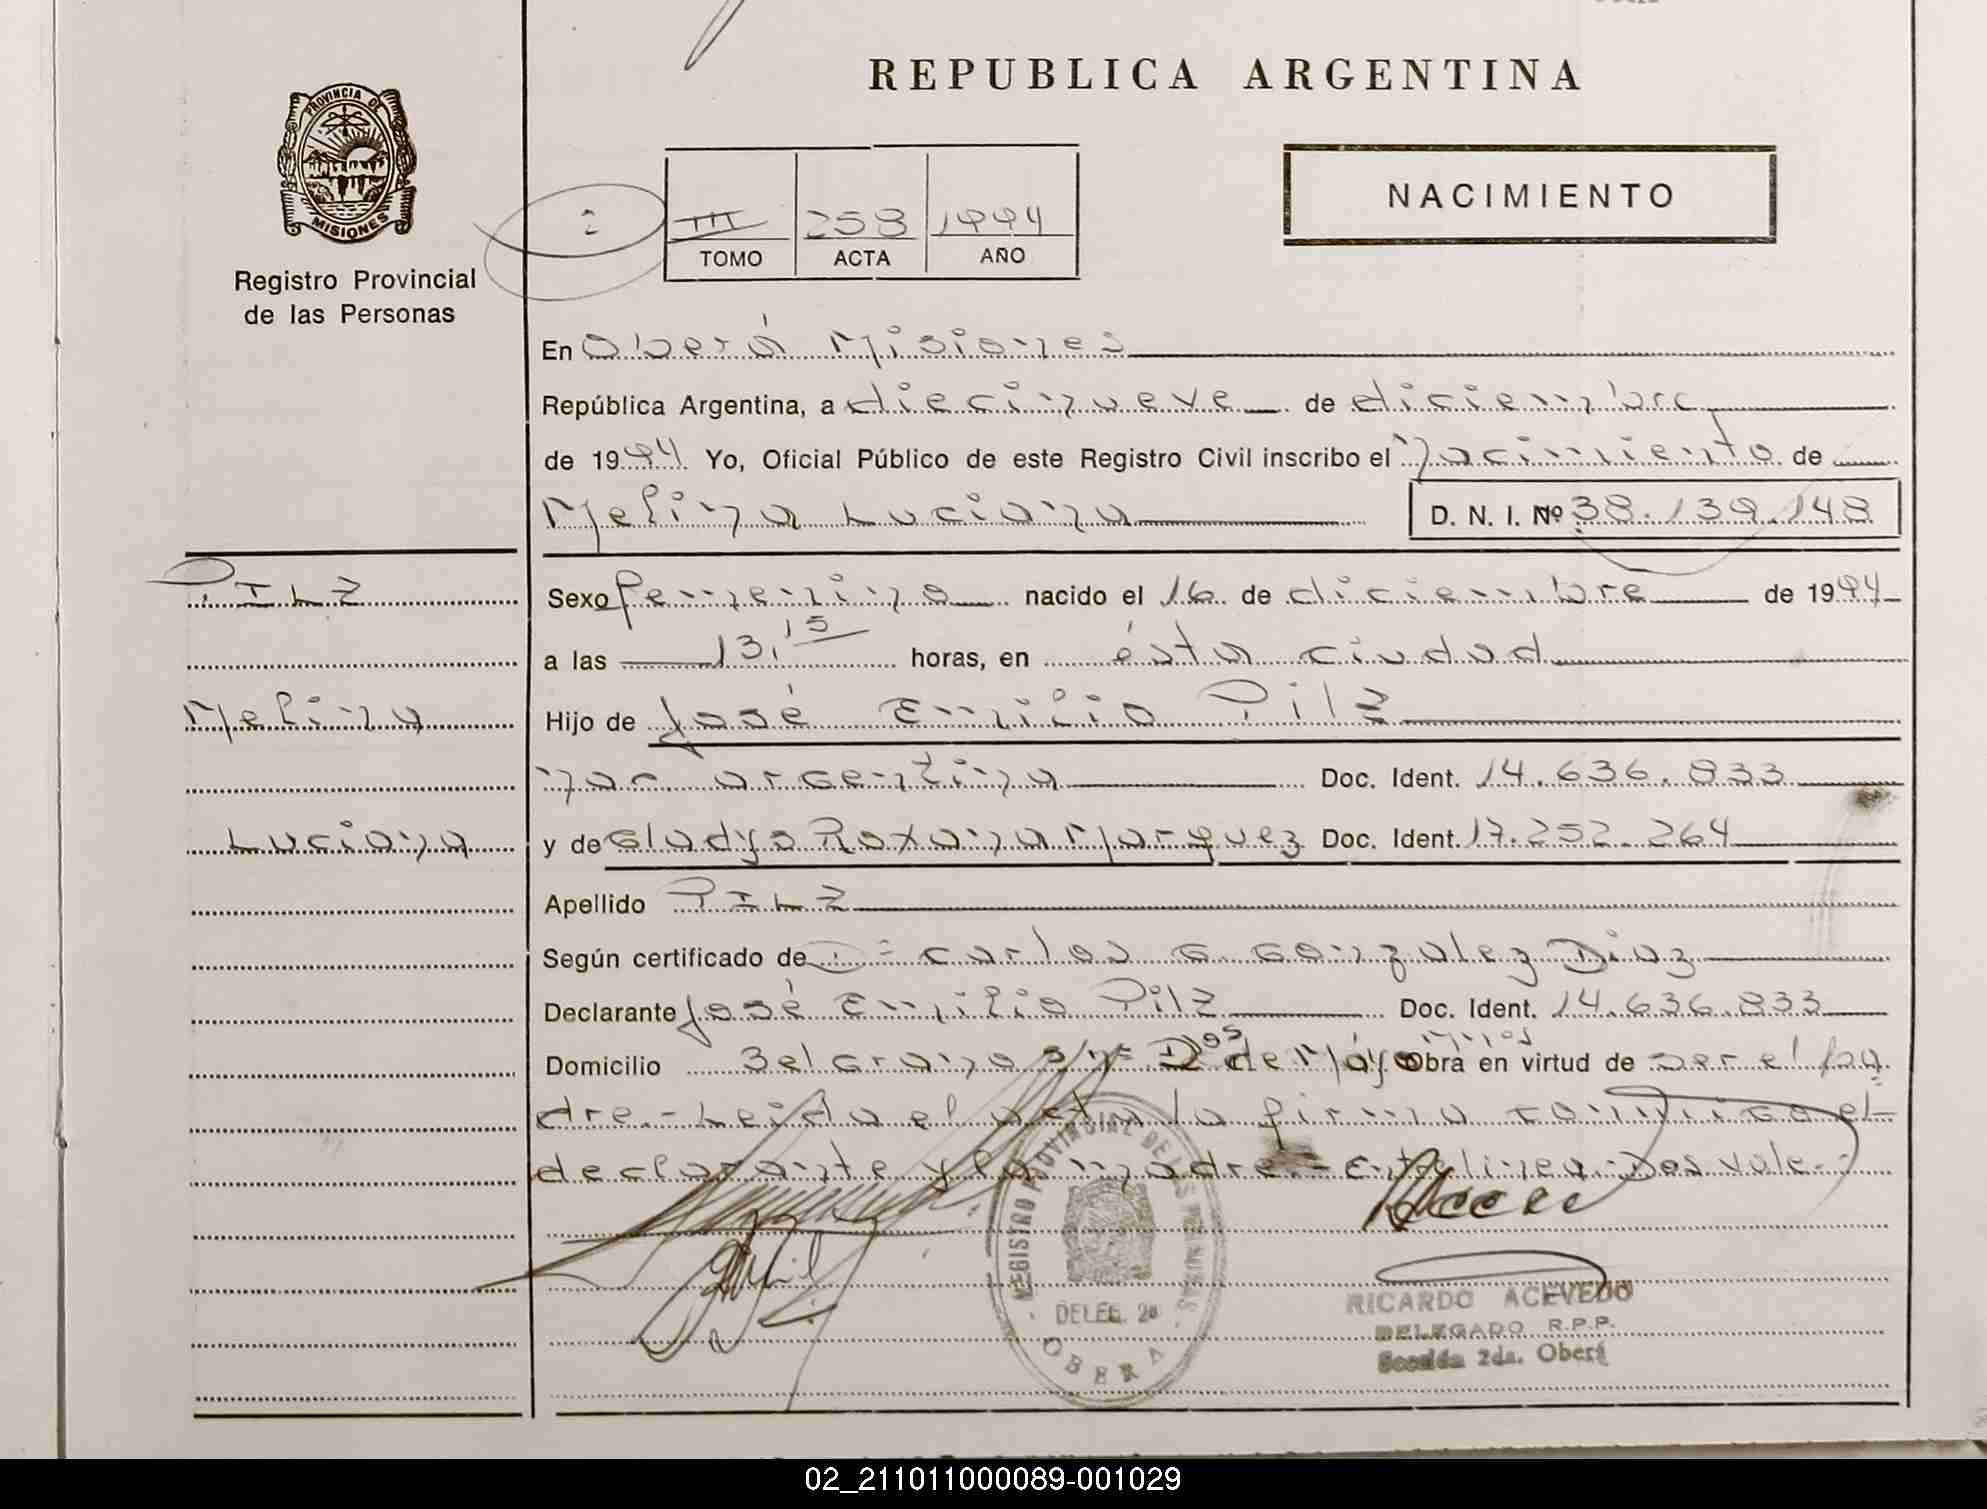 REPUBLICA ARGENTINA
PROVINCIA DE MISIONES
Registro Provincial
de las Personas
2
III 258 1994
TOMO ACTA AÑO
NACIMIENTO
En Oberá Misiones
República Argentina, a diecinueve de diciembre
de 1994 Yo, Oficial Público de este Registro Civil inscribo el nacimiento de
Melina Luciana D. N. I. Nº 38.139.148
PILZ
Melina
Luciana
Sexo femenino nacido el 16 de diciembre de 1994
a las 13,15 horas, en ésta ciudad
Hijo de José Emilio Pilz
nac. argentina Doc. Ident. 14.636.833
y de Gladys Roxana Marquez Doc. Ident. 17.252.264
Apellido PILZ
Según certificado de D= Carlos G Gonzalez Diaz
Declarante José Emilio Pilz Doc. Ident. 14.636.833
Domicilio Belgrano s/nº Dos de Mayo Mnes Obra en virtud de ser el pa
dre.- Leida el acta la firma conmigo el
declarante y la madre.- Entrelinea Dos vale.-
REGISTRO PROVINCIAL DE LAS PERSONAS
DELEG. 2a
OBERA
RICARDO ACEVEDO
DELEGADO R.P.P.
Sección 2da. Oberá
02_211011000089-001029